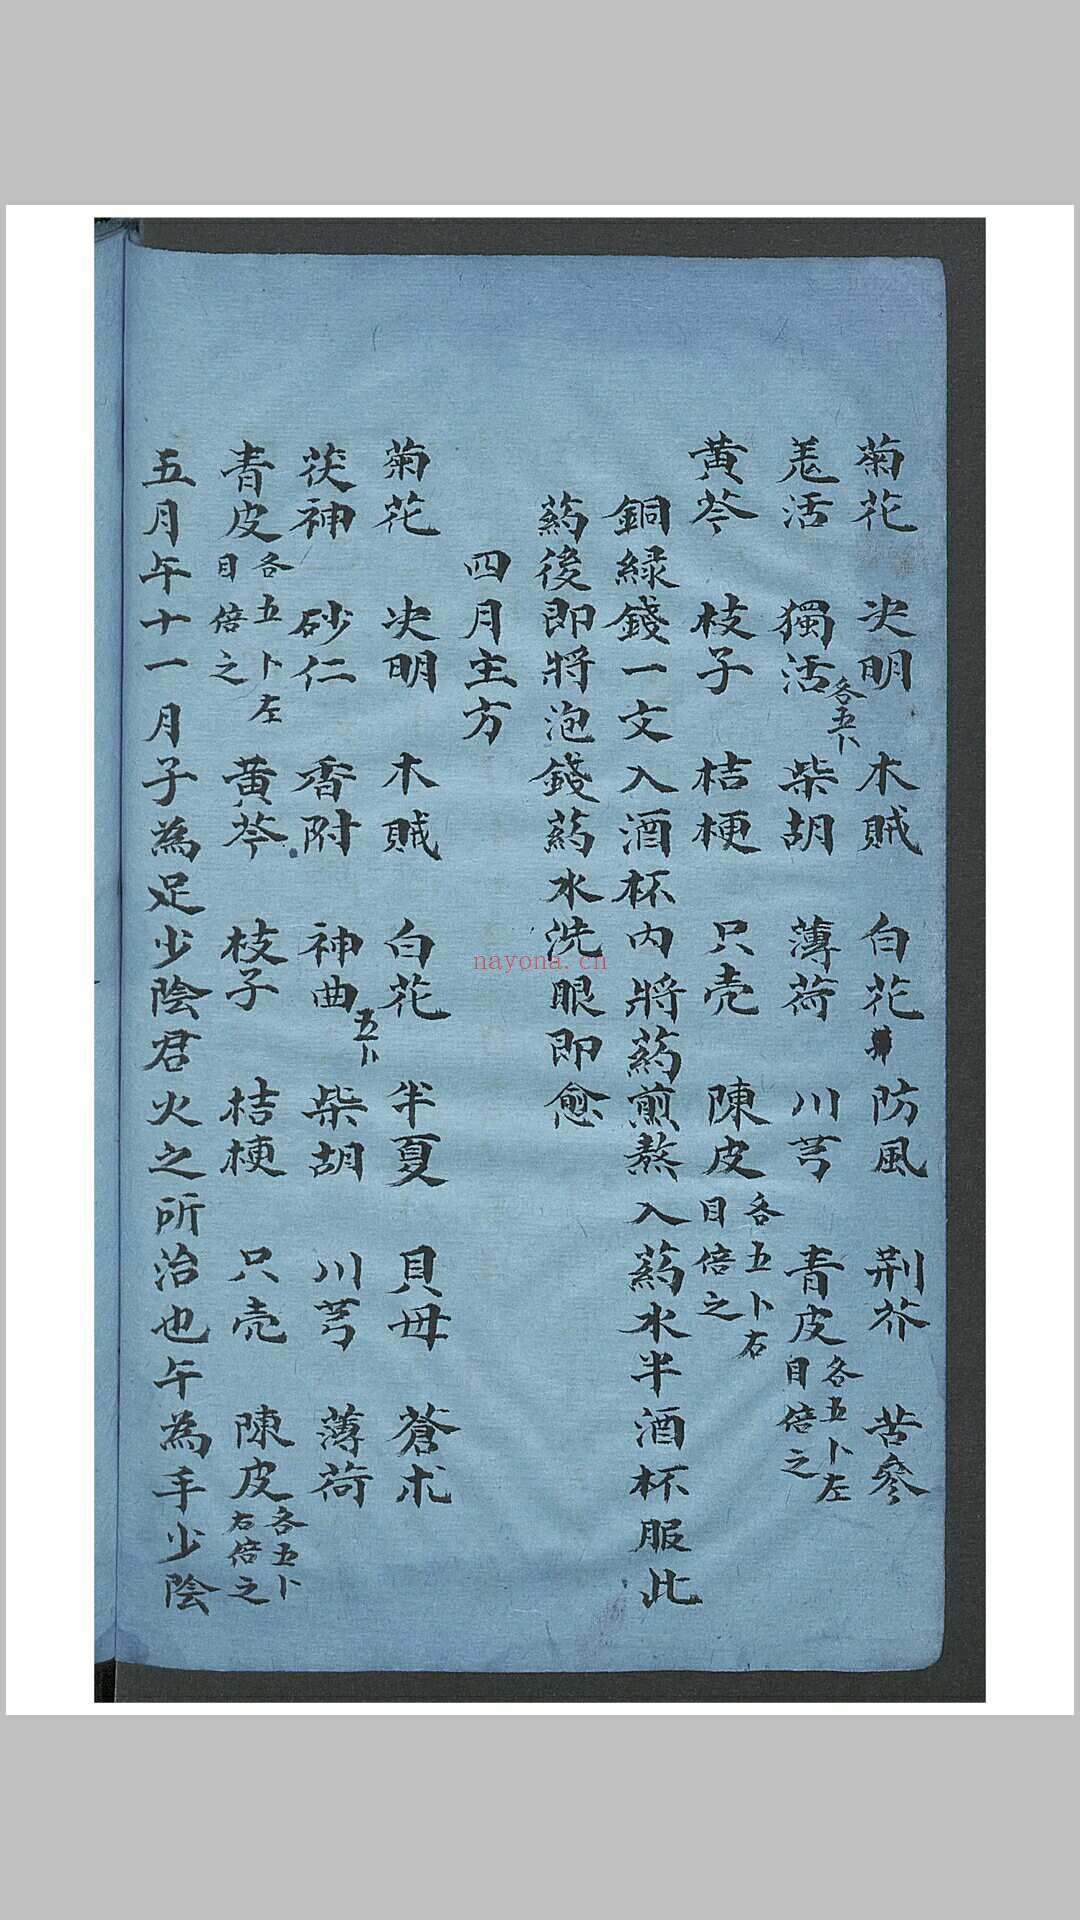 菊花 决明 木贼 白花 防風 荆芥 苦參
羌活 獨活各五卜 柴胡 薄荷 川芎 青皮各五卜左目倍之
黄芩 枝子 桔梗 只壳 陳皮各五卜右目倍之
銅緑錢一文入酒杯内將药煎熬入药水半酒杯服此
药後即將泡錢药水洗眼即愈
四月主方
菊花 决明 木贼 白花 半夏 貝母 蒼朮
茯神 砂仁 香附 神曲五卜 柴胡 川芎 薄荷
青皮各五卜左目倍之 黄芩 枝子 桔梗 只壳 陳皮各五卜右倍之
五月午十一月子為足少陰君火之所治也午為手少陰
nayona.cn